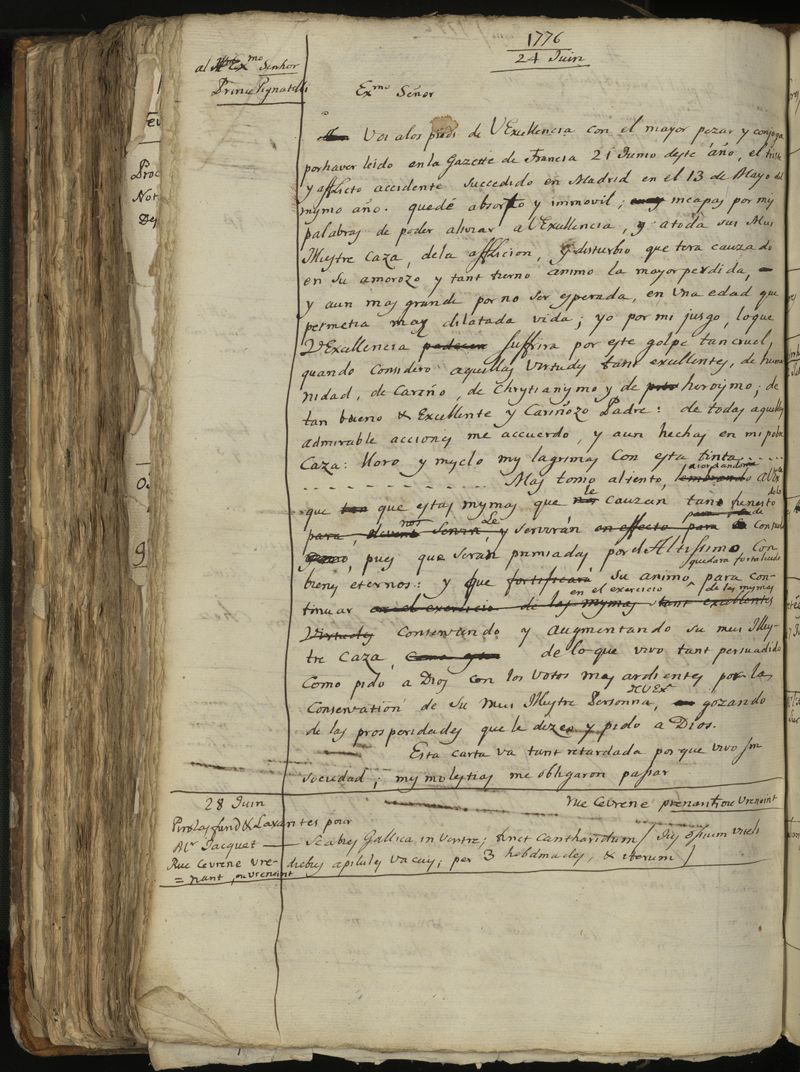 1776
24 Juin
al Exmo Senhor
Prince Pignatelli
Exmo Señor
Voi a los pieds de VExellencia con el mayor pezar y congoja
por haver leido en la Gazette de Francia 21 Junio deste año, el triste
y afflicto accidente succedido en Madrid en el 13 de Mayo del
mysmo año. quedé absorto y immovil; incapas por mis
palabras de poder aliviar a VExellencia, y atoda sus Mui
Illustre Caza, dela affliction, y disturbio que tera cauzado
en su amorozo y tant tierno animo la mayor perdida,
y aun mas grande por no ser esperada, en una edad que
permetia mas dilatada vida; yo por mi jusgo, loque
VExellencia padecera suffrira por este golpe tan cruel,
quando considero aquellas virtudes tant excellentes, de huma
nidad, de Cariño, de Christianysmo y de heroismo; de
tan bueno & Excellente y Cariñozo Padre: de todas aquellas
admirable acciones me accuerdo, y aun hechas en mi pobre
Caza: lloro y misclo mis lagrimas con esta tinta . . . . .
. . . . . . . . . . Mas tomo aliento, lembrando acordandome a VExa
que tan que estas mysmas que le cauzan tano funesto
para, servira, y serviran en effecto para Consuelo
pues que seran premiadas por el Altissimo, con
bienes eternos: y que fortificará su animo quedara fortalecido para con-
tinuar en el exercicio de las mysmas tant excellentes en el exercicio de las mysmas
Virtudes Conservando y augmentando su mui Illus-
tre Caza, de lo que vivo tant persuadido
Como pido a Dios con los votos mas ardientes por la
Conservation de Su Mui Illustre Personna, de VExa gozando
de las prosperidades que le dezeo y pido a Dios.
Esta carta va tant retardada por que vivo sin
sociedad; mis molestias me obligaron passar
28 Juin
Rue Cevrene prenant ou Vrenant
& Laxantes pour
Mr Jacquet — Scabies Gallica in Ventre; Tinct Cantharidum
Rue Cevrene Vre-
= nant, ou Vrenant
diebus a pilulis vacuis; per 3 hebdmades, & iterum